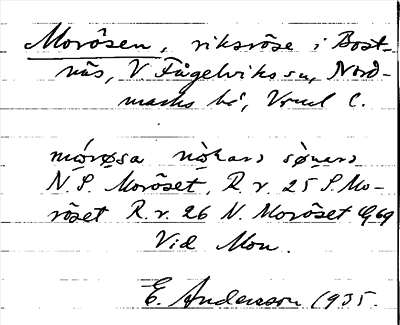 Morösen, riksröse i Bost-
näs, V Fågelviks sn, Nord-
marks hd, Vrml C.
mórøsa nòkarɔ sønarɔ
N. S. Moröset, R. r. 25 S. Mo-
röset R. r. 26 N. Moröset
Vid Mon.
E. Andersson 1935.